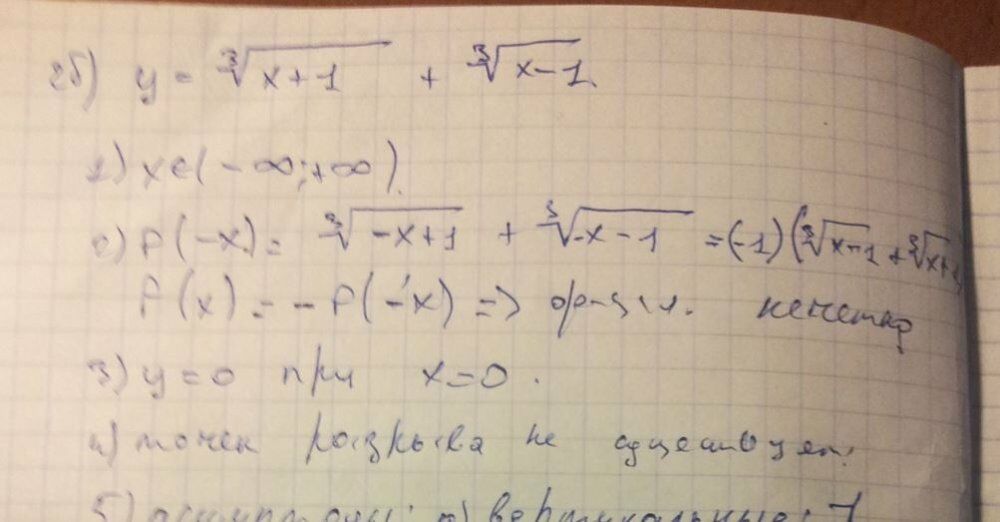 2б) y = ∛(x+1) + ∛(x-1)
1) x∈(-∞;+∞).
2) f(-x) = ∛(-x+1) + ∛(-x-1) = (-1)(∛(x-1) + ∛(x+1)
f(x) = -f(-x) => ф-ция нечетна
3) y=0 при x=0.
4) точек разрыва не существует.
5) асимптоты: а) вертикальные: